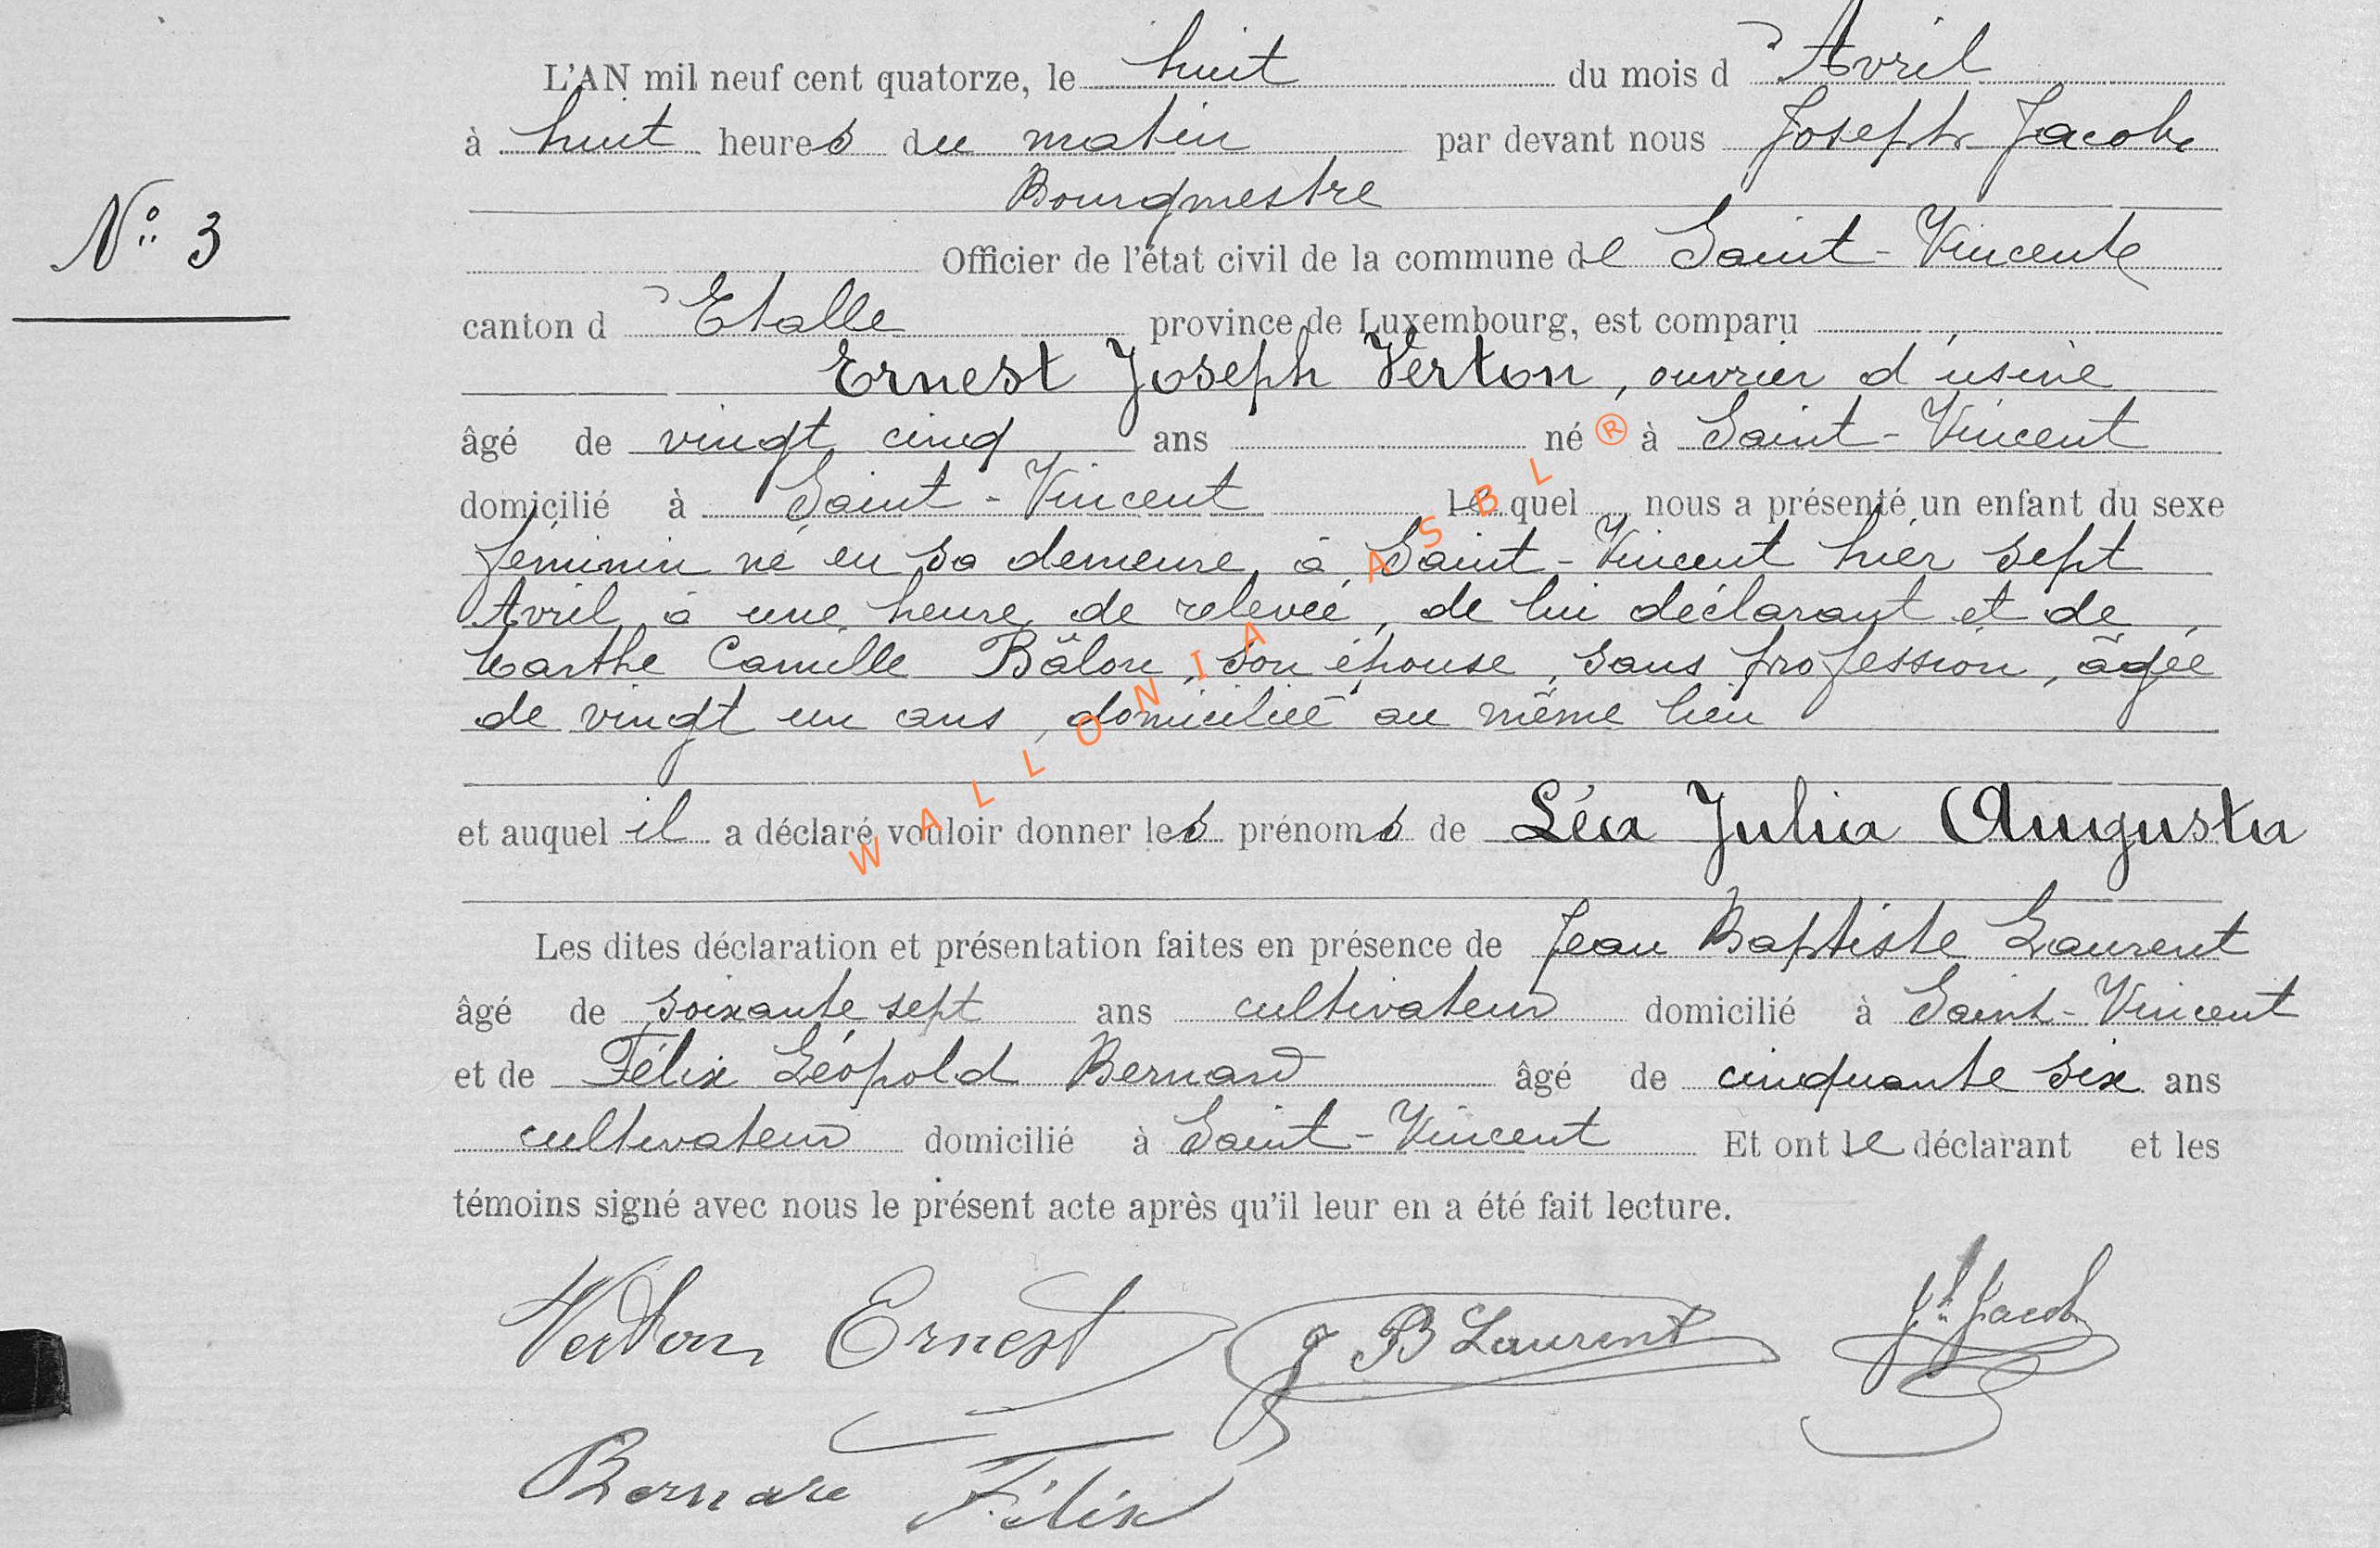 L'AN mil neuf cent quatorze, le huit du mois d'Avril
à huit heures du matin par devant nous Joseph Jacob,
Bourgmestre
N° 3
Officier de l'état civil de la commune de Saint-Vincent
canton d'Etalle province de Luxembourg, est comparu
Ernest Joseph Verton, ouvrier d'usine
âgé de vingt cinq ans né à Saint-Vincent
domicilié à Saint-Vincent lequel nous a présenté un enfant du sexe
féminin né en sa demeure, à Saint-Vincent hier sept
Avril à une heure de relevée, de lui déclarant et de
Marthe Camille Bâlon, son épouse, sans profession, âgée
de vingt un ans, domiciliée au même lieu
et auquel il a déclaré vouloir donner les prénoms de Léa Julia Augusta
Les dites déclaration et présentation faites en présence de Jean Baptiste Laurent
âgé de soixante sept ans cultivateur domicilié à Saint-Vincent
et de Félix Léopold Bernard âgé de cinquante six ans
cultivateur domicilié à Saint-Vincent Et ont le déclarant et les
témoins signé avec nous le présent acte après qu'il leur en a été fait lecture.
Verton Ernest J B Laurent Jh Jacob
Bernard Félix
WALLONIA ASBL ®